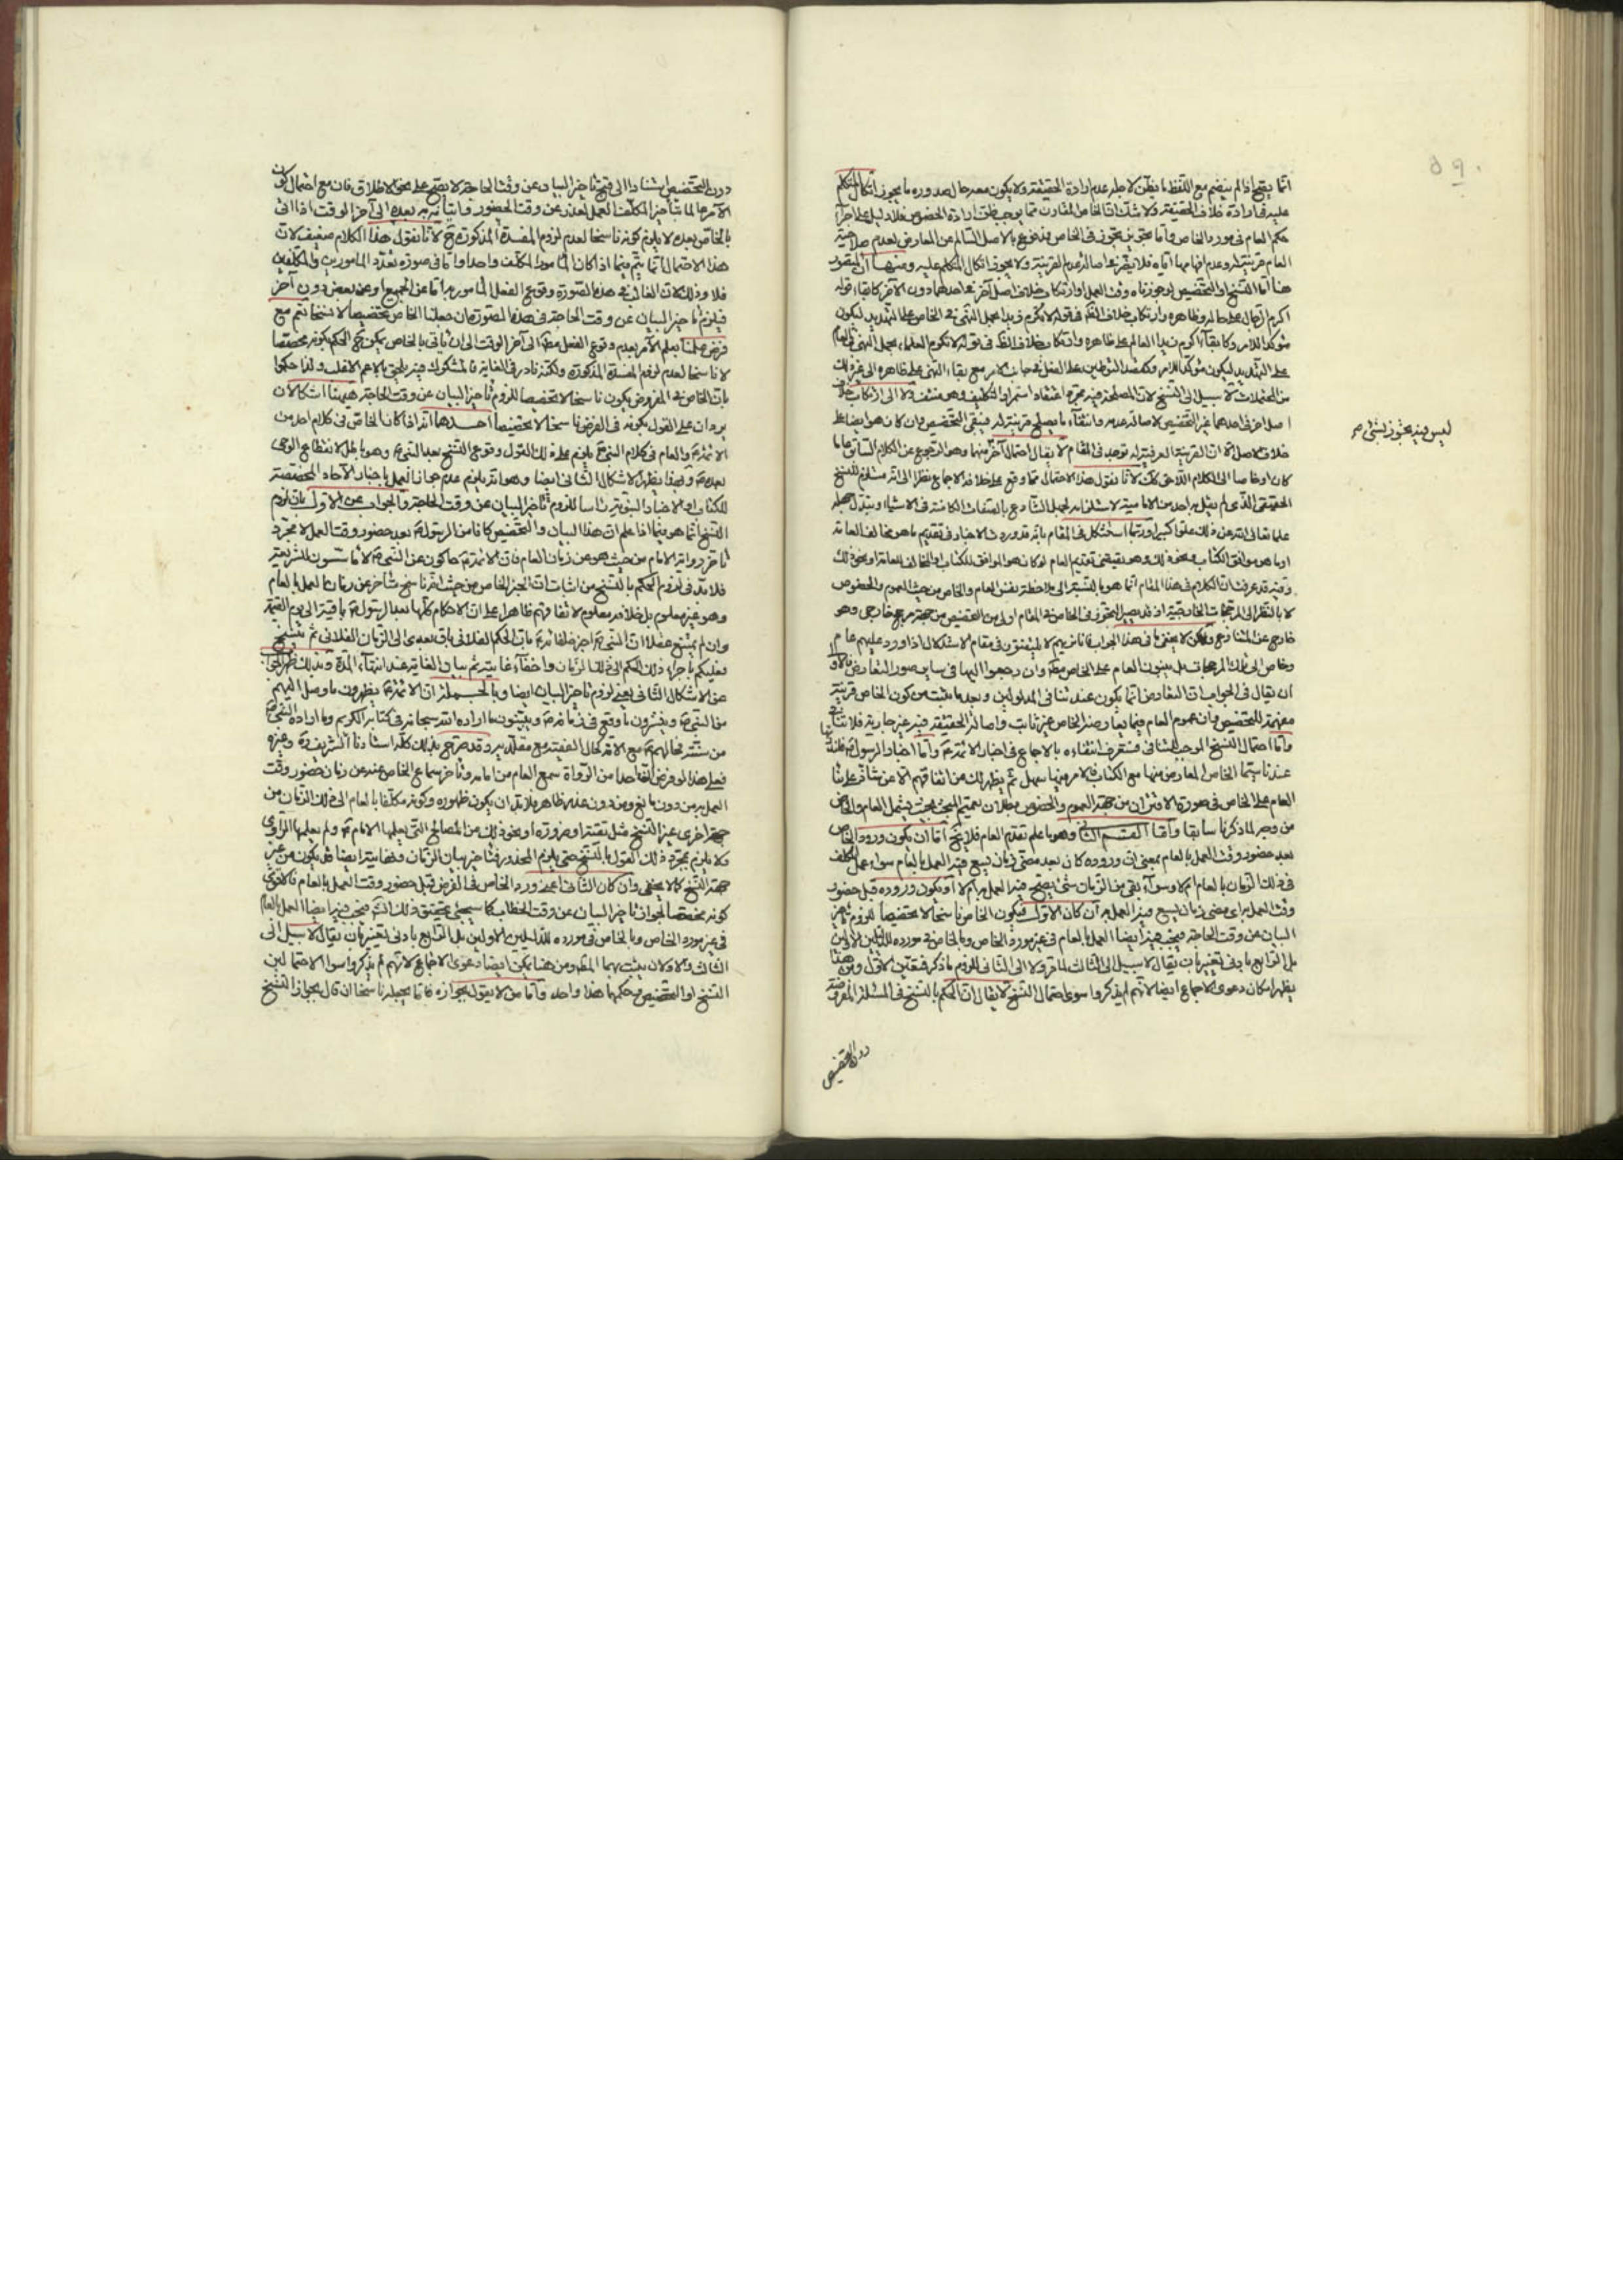 انما يقبح اذا لم ينضم مع اللفظ ما يظن لاجله عدم ارادة الحقيقة ولا يكون معه حال صدوره ما يجوز اتكال المتكلم
عليه في ارادة خلاف الحقيقة ولا شك ان الخاص المقارن مما يوجب ظن ارادة الخصوص فلا دليل على اجراء
حكم العام في مورد الخاص واما تجوز في الخاص فمدفوع بالاصل السالم عن المعارض لعدم صلاحية
العام قرينة له وعدم
هنا اما النسخ او التخصيص
اكرم الرجال على ظاهره وارتكاب خلاف الظ في قوله لا تكرم زيدا
مؤكدا للامر وكابقاء اكرم زيدا العالم على ظاهره وارتكاب خلاف الظ في قوله لا تكرم العلماء بحمل النهي في العام
على التهديد ليكون مؤكدا للامر وكقصد التوطين على الفعل في جانب الامر مع بقاء النهي على ظاهره الى غير ذلك
من المحتملات لا سبيل الى النسخ لان المصلحة فيه مجرد اعتقاد استمرار التكليف وهو منتف ولا الى ارتكاب خلاف
اصل اخر في احدهما غير التخصيص لاصالة عدمه وانتفاء ما يصلح قرينة له فبقى التخصيص وان كان هو ايضا على
خلاف الاصل الا ان القرينة العرفية له توجد في المقام لا يقال احتمال آخر منهما وهو الرجوع عن الكلام السابق عاما
كان او خاصا الى الكلام اللاحق كك لانا نقول هذا الاحتمال مما وقع على خلافه الاجماع نظرا الى انه مستلزم للنسخ
الحقيقي الذي لم يقل به احد من الامامية لاستلزامه لجهل الشارع بالصفات الكامنة في الاشياء وتبدل جهله
علما تعالى الله عن ذلك علوا كبيرا وربما استشكل في المقام بانه قد ورد في الاخبار في تقديم ما هو مخالف العامة
او ما هو موافق الكتاب ونحو ذلك وهو يقتضي تقديم العام لو كان هو الموافق للكتاب او المخالف للعامة او نحو ذلك
وفيه قد عرفت ان الكلام في هذا المقام انما هو بالنسبة الى ملاحظة نفس العام والخاص من حيث العموم والخصوص
لا بالنظر الى المرجحات الخارجية اذ قد يصير التجوز في الخاص في المقام اولى من التخصيص من جهة مرجح خارجي وهو
خارج عن المتنازع ولكن لا يخفى ما في هذا الجواب فانا نريهم لا يلتفتون في مقام الاستدلال اذا ورد عليهم عام
وخاص الى تلك المرجحات بل يبنون العام على الخاص مط وان رجعوا اليها في ساير صور التعارض فالاولى
ان يقال في الجواب ان التعارض انما يكون عند تنافي المدلولين وبعد ما يثبت من كون الخاص قرينة
مفهمة للتخصيص فان عموم العام فيما يعارضه الخاص غير ثابت واصالة الحقيقة فيه غير جارية فلا تنافي
واما احتمال النسخ الموجب للتنافي فستعرف انتفاءه بالاجماع في اخبار الائمة ع واما اخبار الرسول ص
عندنا سيما الخاص المعارض منها مع الكتاب فالامر فيها سهل ثم يظهر لك من اتفاقهم
العام على الخاص في صورة الاقتران من جهة العموم والخصوص بطلان تعميم المبحث بحيث يشمل العام والخاص
من وجه لما ذكرنا سابقا واما القسم الثاني وهو ما علم تقدم العام فلا يخ اما ان يكون ورود الخاص
بعد حضور وقت العمل بالعام بمعنى ان وروده كان بعد مضي زمان يسع فيه العمل بالعام سواء عمل المكلف
في ذلك الزمان بالعام ام لا وسواء بقى من الزمان شئ يصح فيه العمل به ام لا او يكون وروده قبل حضور
وقت العمل به اي مضي زمان يسع فيه العمل به فان كان الاول فيكون الخاص ناسخا لا تخصيصا للزوم تاخير
البيان عن وقت الحاجة فيجب حينئذ ايضا العمل بالعام في غير مورد الخاص وبالخاص في مورده للدليلين الاولين
بل الرابع بادنى تغيير بان يقال لا سبيل الى الثالث لما مر ولا الى الثاني للزوم ما ذكر فتعين الاول ومن هنا
يظهر امكان دعوى الاجماع ايضا لانهم لم يذكروا سوى احتمال النسخ لا يقال ان الحكم بالنسخ في المسئلة المفروضة
دون التخصيص
ليس فيه تجوز بشئ ص
دون التخصيص استنادا الى قبح تاخير البيان عن وقت الحاجة لا يصح على نحو الاطلاق فان مع احتمال كون
الآمر عالما بتأخير المكلف العمل لعذر عن وقت الحضور واتيانه به بعده الى آخر الوقت اذا اتى
بالخاص بعده لا يلزم كونه ناسخا لعدم لزوم المفسدة المذكورة ح لانا نقول هذا الكلام ضعيف لان
هذا الاحتمال انما يتم فيما اذا كان المأمور المكلف واحدا واما في صورة تعدد المأمورين والمكلفين
فلا وذلك لان الغالب في هذه الصورة وقوع الفعل المأمور به اما عن الجميع او عن بعض دون آخر
فيلزم تاخير البيان عن وقت الحاجة في هذه الصورة ان جعلنا الخاص تخصيصا لا نسخا نعم مع
فرض علمنا بعلم الآمر بعدم وقوع الفعل مط الى آخر الوقت الى ان ياتي بالخاص يمكن ح الحكم بكونه مخصصا
لا ناسخا لعدم لزوم المفسدة المذكورة ولكنه نادر في الغاية فالمشكوك فيه يلحق بالاعم الاغلب ولذا حكموا
بان الخاص في المفروض يكون ناسخا لا تخصيصا للزوم تاخير البيان عن وقت الحاجة وهيهنا اشكالان
يردان على القول بكونه في الفرض ناسخا لا تخصيصا احدهما انه اذا كان الخاص في كلام احد من
الائمة ع والعام في كلام النبي ص يلزم على ذلك القول وقوع النسخ بعد النبي ص وهو باطل لانقطاع الوحي
بعده ص وبهذا يظهر الاشكال الثاني ايضا وهو انه يلزم عدم جواز العمل باخبار الآحاد المخصصة
للكتاب او الاخبار النبوية راسا للزوم تاخير البيان عن وقت الحاجة والجواب عن الاول بان لزوم
النسخ انما هو فيما اذا علم ان هذا البيان والتخصيص كانا من الرسول ص بعد حضور وقت العمل لا مجرد
تاخر رواية الامام من حيث هو عن زمان العام فان الائمة ع حاكون عن النبي ص لا مؤسسون للشريعة
فلا بد في لزوم الحكم بالنسخ من اثبات ان الخبر الخاص من حيث انه ناسخ متأخر عن زمان العمل بالعام
وهو غير معلوم بل خلافه معلوم لاتفاقهم ظاهرا على ان الاحكام كلها بعد الرسول ص باقية الى يوم القيمة
وان لم يمتنع عقلا ان النبي ص اخبر خلفائه ع بان الحكم الفلاني باق بعدي الى الزمان الفلاني ثم ينسخ
فعليكم باجراء ذلك الحكم الى ذلك الزمان واخفاء غايته ثم بيان الغاية عند انتهاء المدة وبذلك ظهر الجواب
عن الاشكال الثاني يعني لزوم تاخير البيان ايضا وبالجملة ان الائمة ع يظهرون ما وصل اليهم
من النبي ص ويفسرون ما وقع في زمانه ص ويبينون ما اراده الله سبحانه في كتابه الكريم وما اراده النبي ص
من سنته فحالهم ع مع الامة كحال الفقيه مع مقلديه وقد صرح بذلك كله استادنا الشريف ره وغيره
فعلى هذا لو فرض ان واحدا من الرواة سمع العام من امامه وتاخر سماع الخاص عنه عن زمان حضور وقت
العمل به من دون مانع ومن دون عذر ظاهر فلا بد ان يكون ظهوره وكونه مكلفا بالعام الى ذلك الزمان من
جهة اخرى غير النسخ مثل تقية او ضرورة او نحو ذلك من المصالح التي يعلمها الامام ع ولم يعلمها الراوي
ولا يلزم بمجرد ذلك القول بالنسخ حتى يلزم المحذور
جهة النسخ كما لا يخفى وان كان الثاني اعني ورود الخاص في الفرض قبل حضور وقت العمل بالعام فالاقوى
كونه مخصصا لجواز تاخير البيان عن وقت الخطاب كما سيجئ تحقيق ذلك انش فيجب فيه ايضا العمل بالعام
في غير مورد الخاص وبالخاص في مورده للدليلين الاولين بل الرابع بادنى تغيير بان يقال لا سبيل الى
الثالث والاولان يثبت بهما المط ومن هنا يمكن ايضا دعوى الاجماع لانهم لم يذكروا سوى الاحتمالين
النسخ او التخصيص وحكمهما هنا واحد واما من لا يقول بجوازه فاما يجعله ناسخا ان قال بجواز النسخ